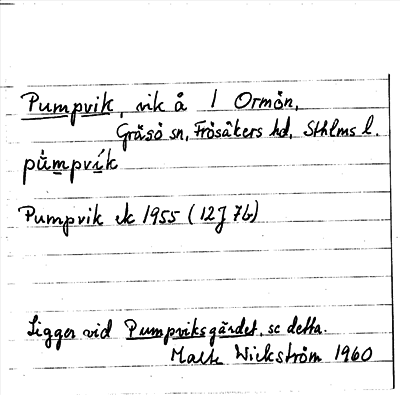 Pumpvik, vik å 1 Ormön,
Gräsö sn, Frösåkers hd, Sthlms l.
pùmpvík
Pumpvik ek 1955 (12J 7b)
Ligger vid Pumpviksgärdet, se detta.
Wickström 1960